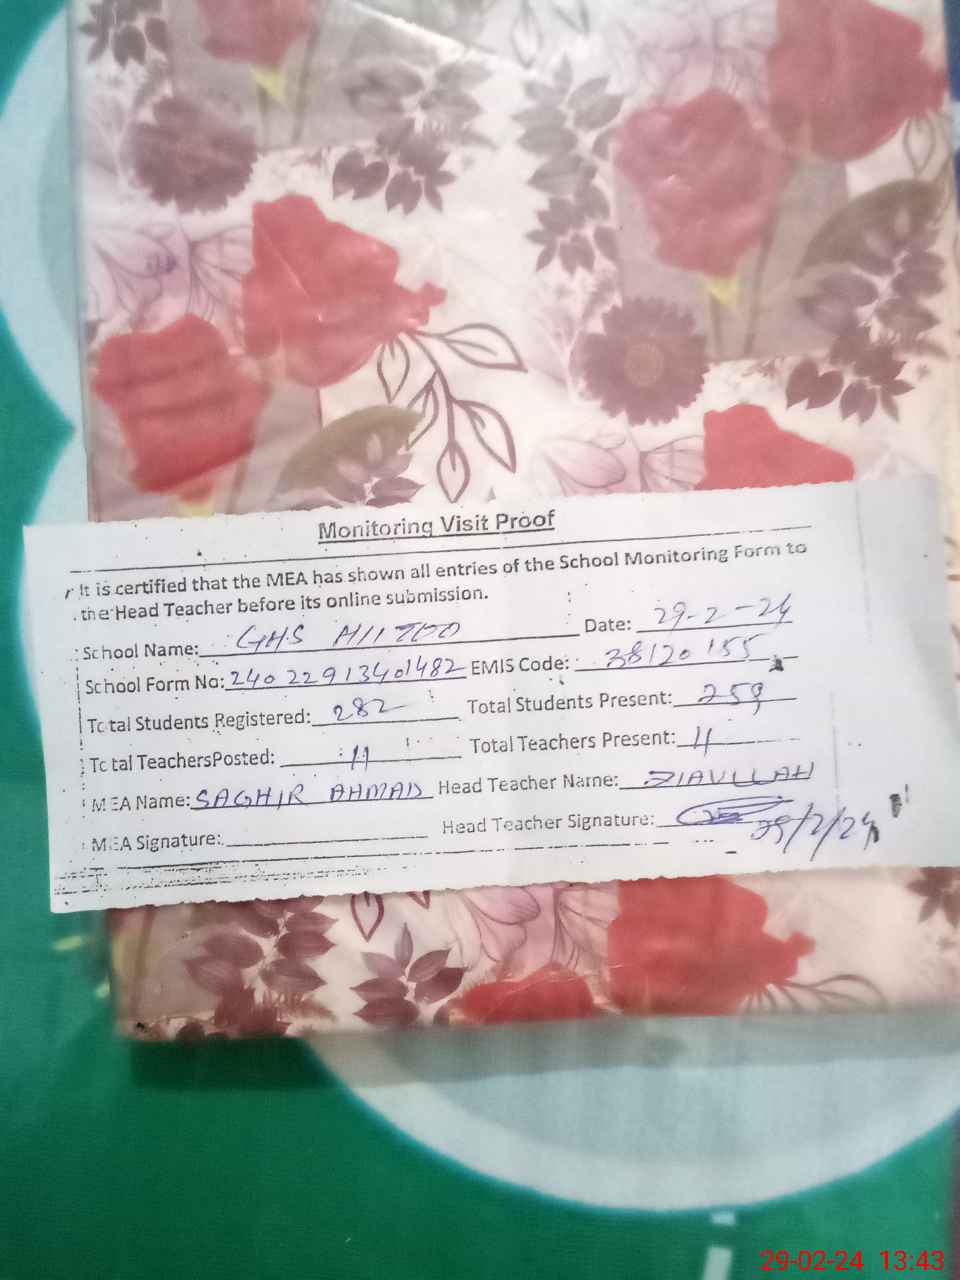 Monitoring Visit Proof
It is certified that the MEA has shown all entries of the School Monitoring Form to
the Head Teacher before its online submission.
School Name: GHS Date: 29-2-24
School Form No: 240 22913401482 EMIS Code: 38120155
Total Students Registered: 282 Total Students Present: 259
Total TeachersPosted: 11 Total Teachers Present: 11
MEA Name: SAGHIR AHMAD Head Teacher Name: ZIAULLAH
MEA Signature: Head Teacher Signature: 29/2/24
29-02-24 13:43